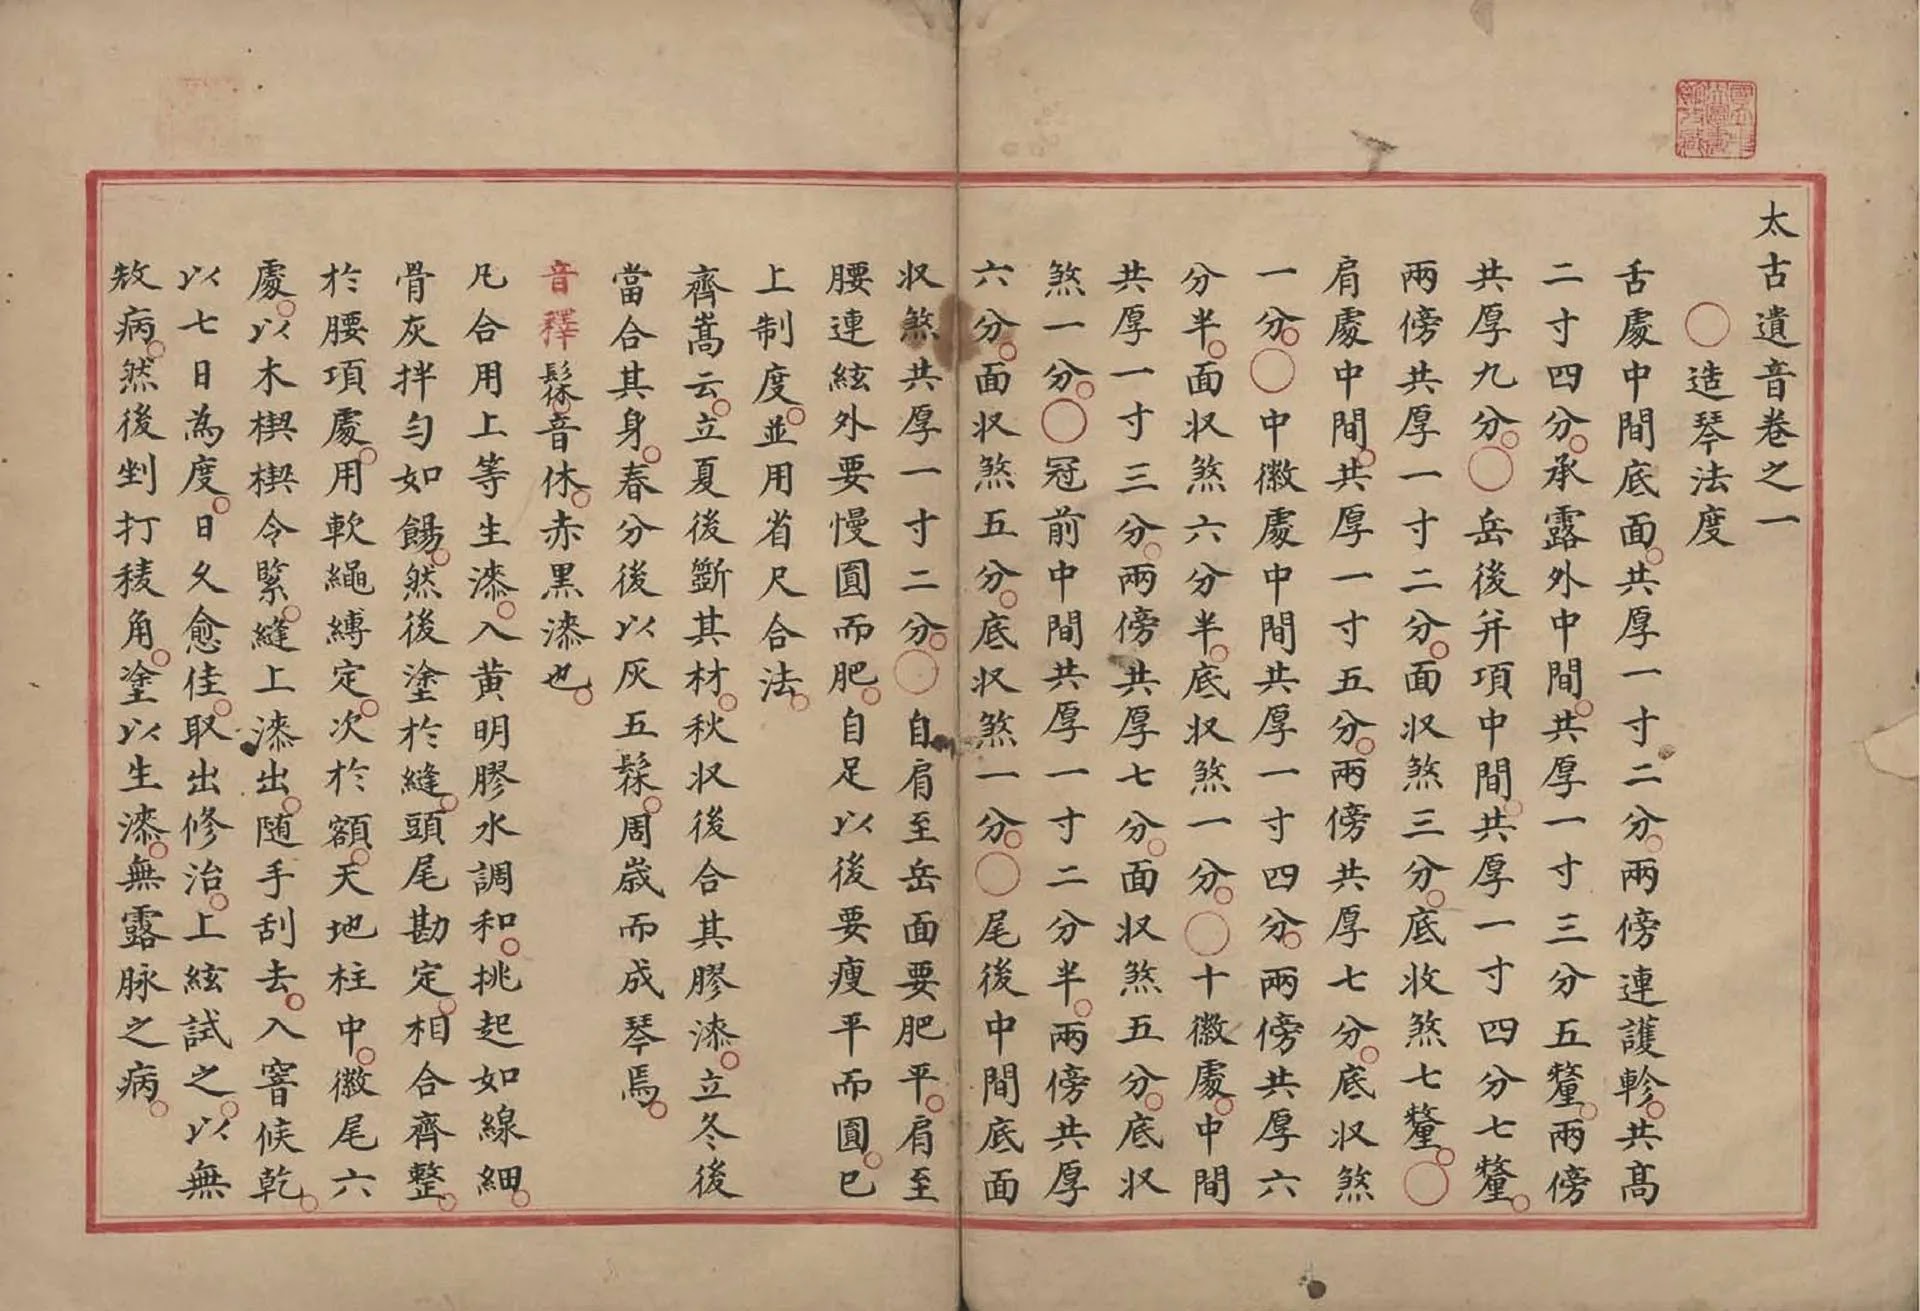 太古遺音卷之一
〇造琴法度
舌處中間底面。共厚一寸二分。兩傍連護軫。共高
二寸四分。承露外中間。共厚一寸三分五釐。兩傍
共厚九分。〇岳後并項中間。共厚一寸四分七釐。
兩傍共厚一寸二分。面収煞三分。底收煞七釐。〇
肩處中間。共厚一寸五分。兩傍共厚七分。底収煞
一分。〇中徽處中間共厚一寸四分。兩傍共厚六
分半。面収煞六分半。底収煞一分。〇十徽處。中間
共厚一寸三分。兩傍共厚七分。面収煞五分。底収
煞一分。〇冠前中間共厚一寸二分半。兩傍共厚
六分。面収煞五分。底収煞一分。〇尾後中間底面
収煞共厚一寸二分。〇自肩至岳面要肥平。肩至
腰連絃外要慢圓而肥。自足以後要瘦平而圓。已
上制度。並用省尺合法。
齊嵩云。立夏後斵其材。秋収後合其膠漆。立冬後
當合其身。春分後以灰五髹。周歲而成琴焉。
音釋髹。音休。赤黑漆也。
凡合用上等生漆。入黃明膠水調和。挑起如線細。
骨灰拌勻如餳。然後塗於縫。頭尾勘定。相合齊整。
於腰項處。用軟繩縛定。次於額。天地柱中。徽尾六
處。以木楔楔令緊。縫上漆出。随手刮去。入窨候乾。
以七日為度。日久愈佳。取出修治。上絃試之。以無
㪇病。然後剉打稜角。塗以生漆。無露脉之病。